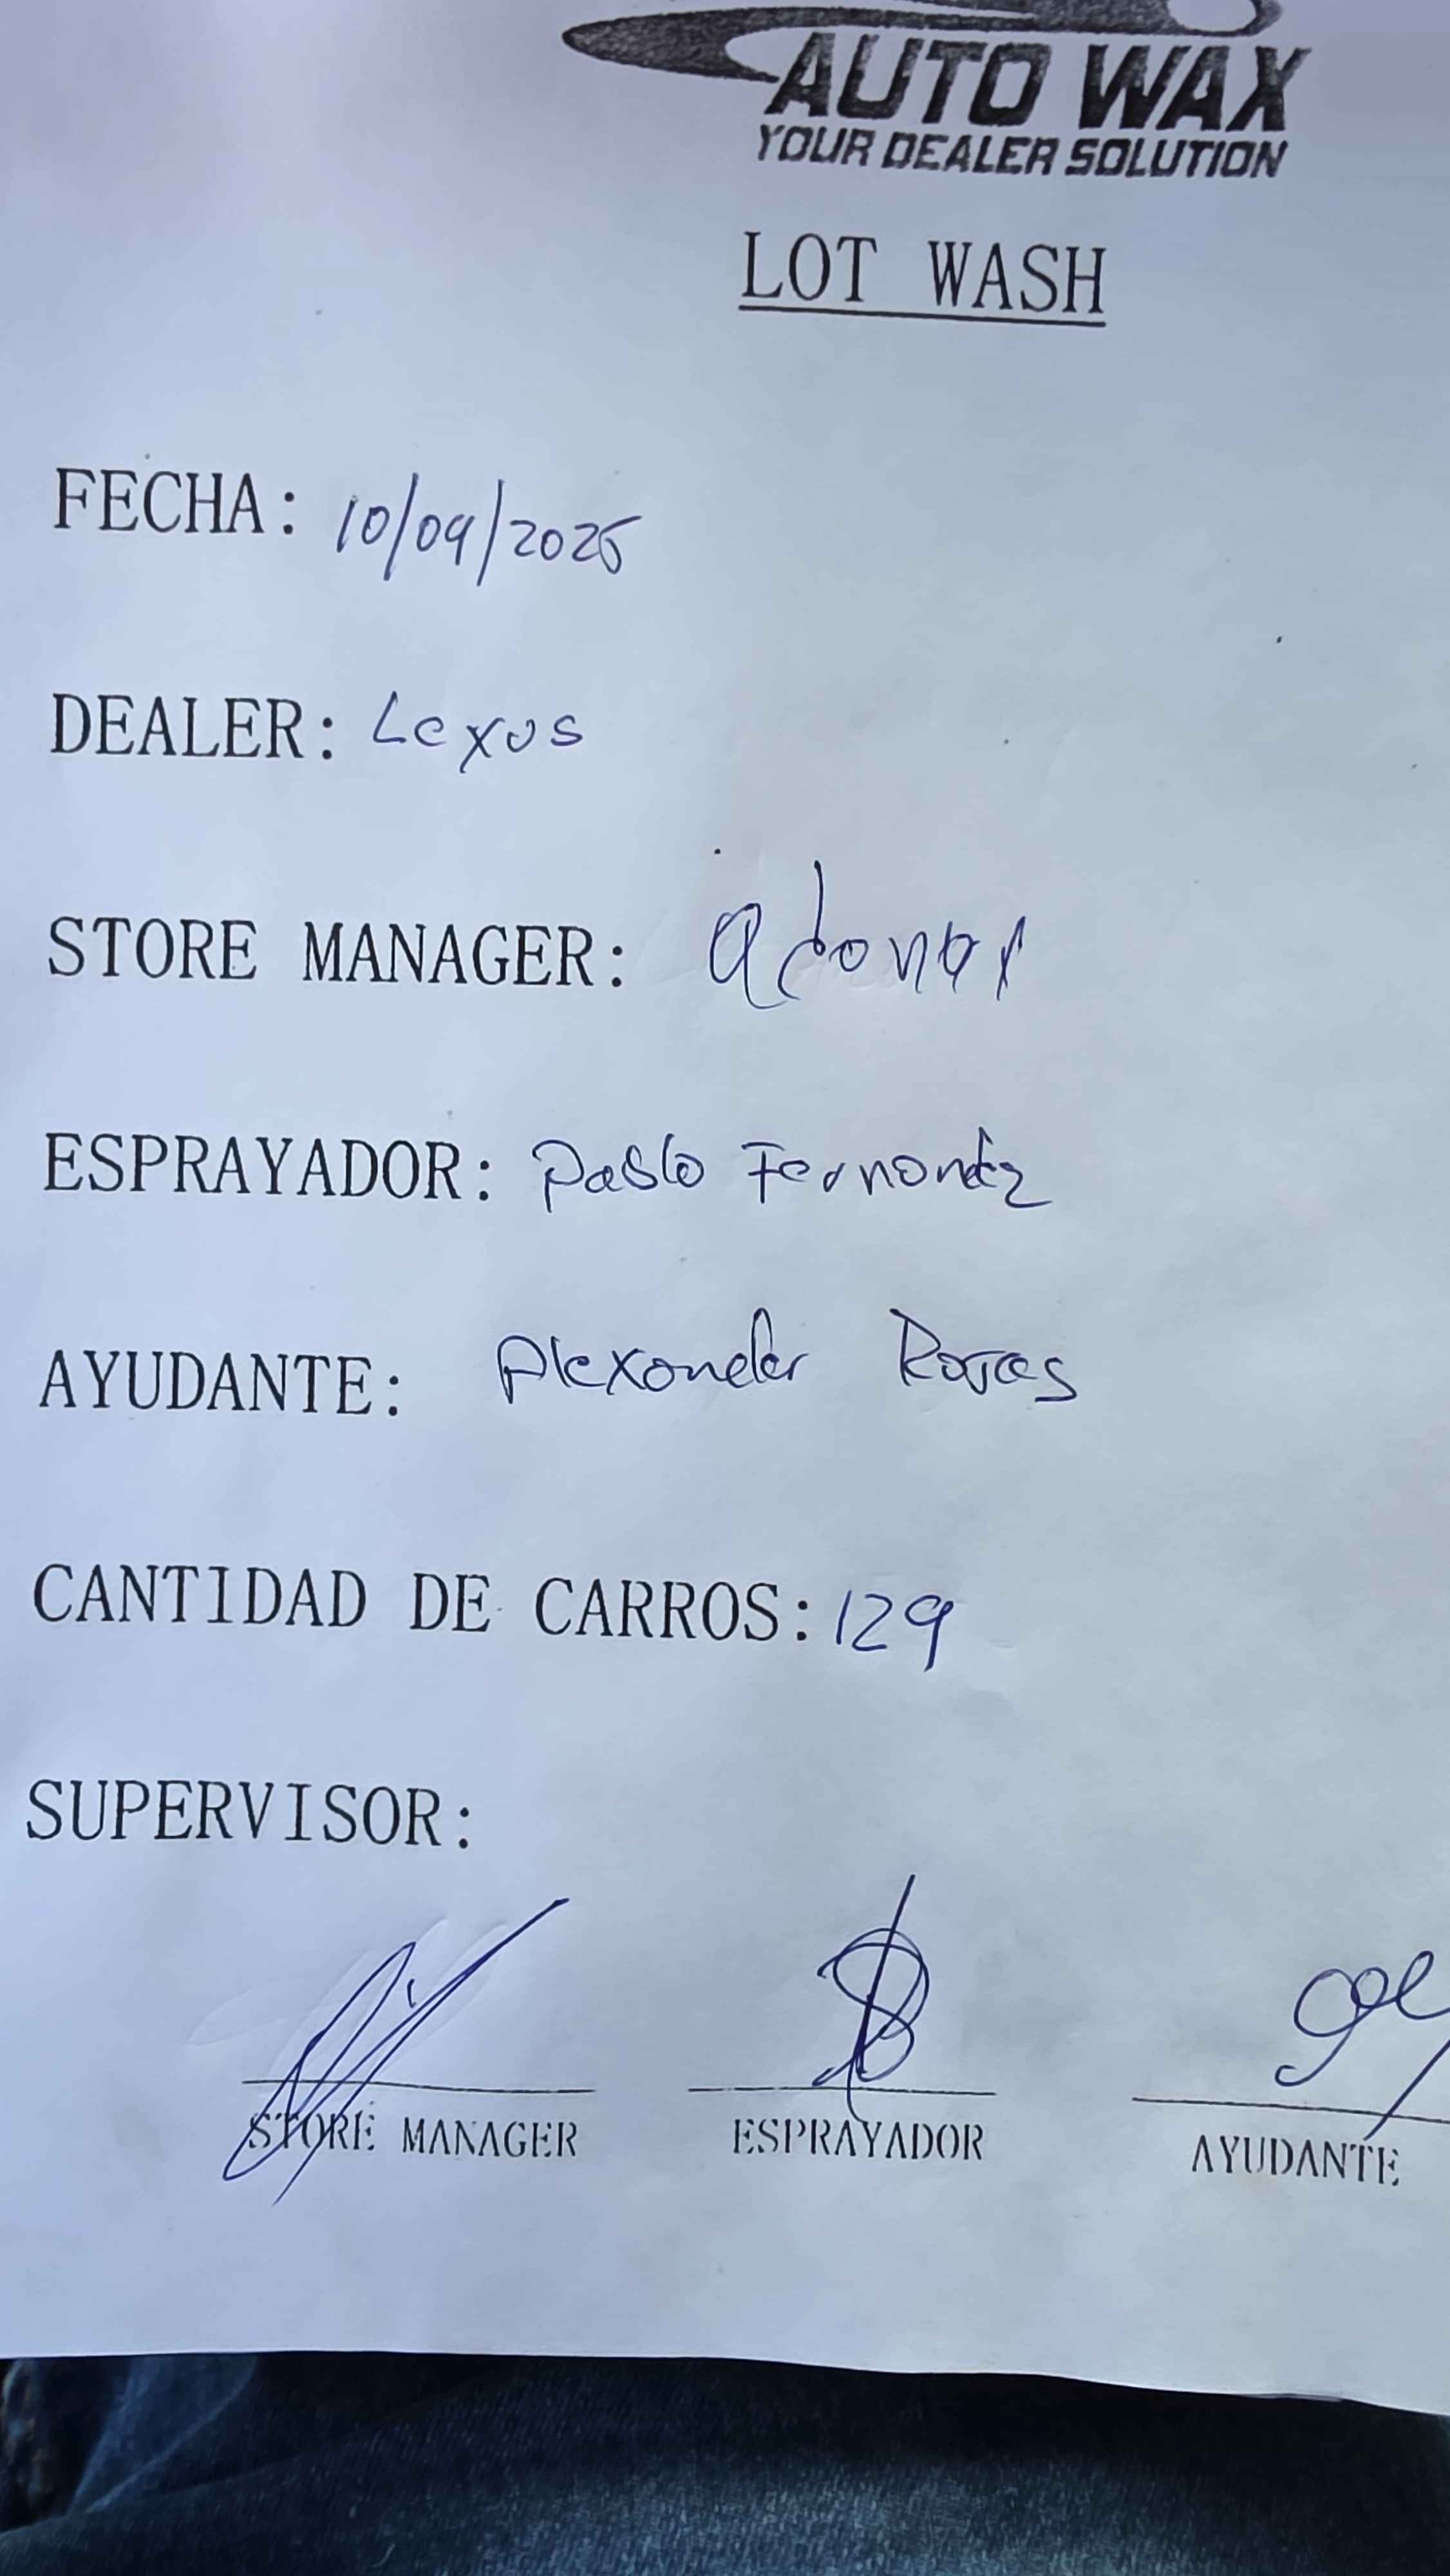 AUTO WAX
YOUR DEALER SOLUTION
LOT WASH
FECHA: 10/09/2025
DEALER: Lexus
STORE MANAGER:
ESPRAYADOR: Pablo Fernandez
AYUDANTE: Alexander Rojas
CANTIDAD DE CARROS: 129
SUPERVISOR:
STORE MANAGER ESPRAYADOR AYUDANTE